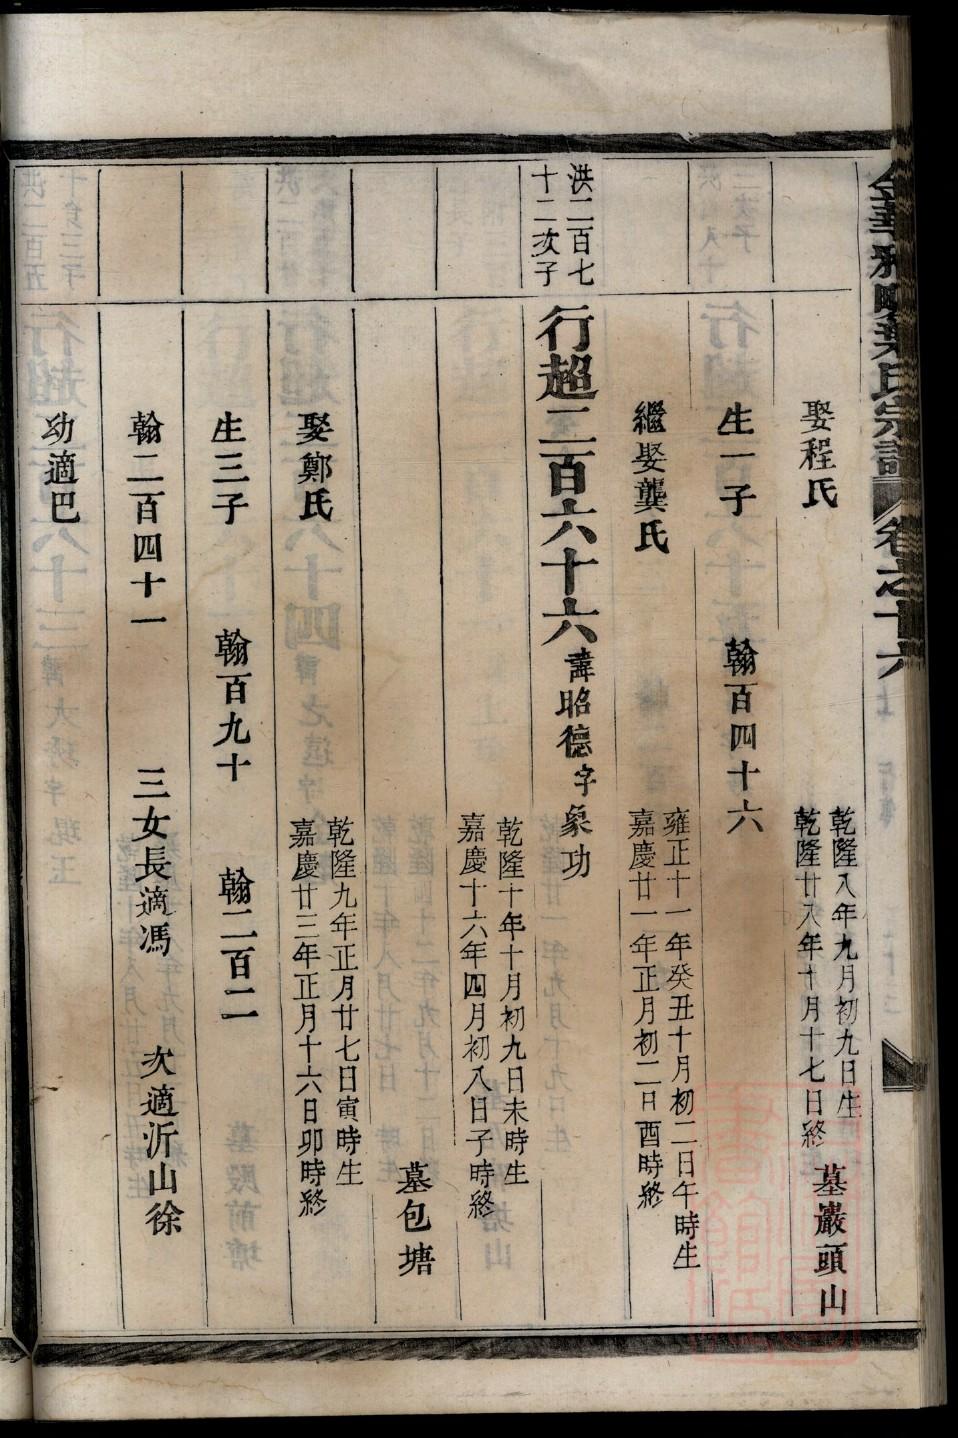 葉氏宗譜 卷之十六
娶程氏
乾隆八年九月初九日生
乾隆廿八年十月十七日終
墓巖頭山
生一子 翰百四十六
繼娶龔氏
雍正十一年癸丑十月初二日午時生
嘉慶廿一年正月初二日酉時終
洪二百七
十二次子
行超二百六十六 諱昭德字象功
乾隆十年十月初九日未時生
嘉慶十六年四月初八日子時終
墓包塘
娶鄭氏
乾隆九年正月廿七日寅時生
嘉慶廿三年正月十六日卯時終
生三子 翰百九十 翰二百二
翰二百四十一 三女長適馮 次適沂山徐
幼適巴